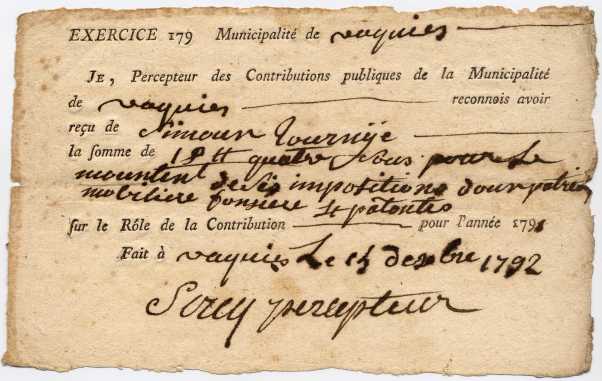 EXERCICE 179 Municipalité de vaquies
JE, Percepteur des Contributions publiques de la Municipalité
de vaquies reconnois avoir
reçu de Simoun tournije
la somme de 18 ₶ quatre sous pour le
mountent de ses impositions dour patri
mobiliere fonsiere et patantes
sur le Rôle de la Contribution pour l'année 1791
Fait à vaquies Le 15 desxbre 1792
percepteur